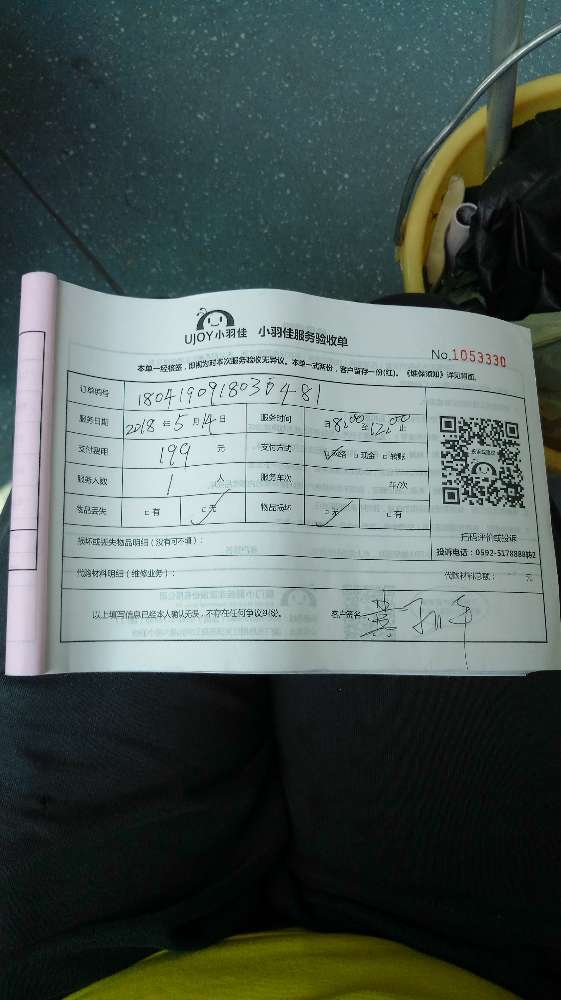 UJOY小羽佳 小羽佳服务验收单
No.1053330
本单一经核签，即视为对本次服务验收无异议。本单一式两份，客户留存一份(红)。《维保须知》详见背面。
订单编号
服务日期 2018 年 5 月 14 日 服务时间 8:00 12:00 止
支付费用 199 元 支付方式 ☑网络 □现金 □转账
服务人数 1 人 服务车次 车/次
物品丢失 □有 ☑无 物品损坏 ☑无 □有
扫码评价或投诉
损坏或丢失物品明细（没有可不填）：
投诉电话：0592-5178888转2
代购材料明细（维修业务）： 代购材料总额： 元
以上填写信息已经本人确认无误，不存在任何争议纠纷。 客户签名